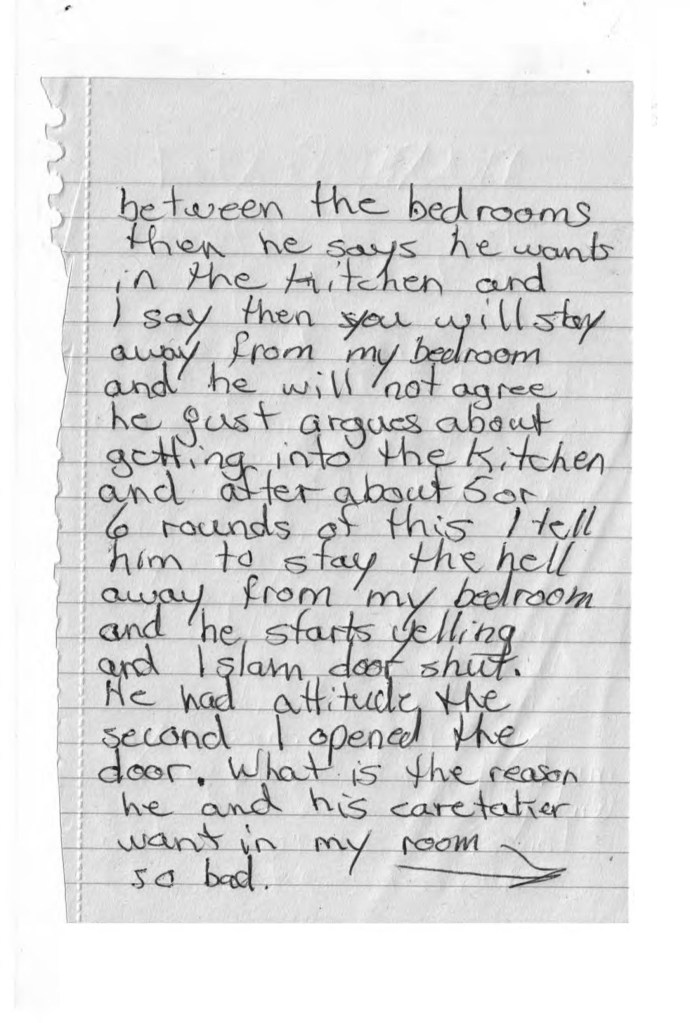 between the bedrooms
then he says he wants
in the kitchen and
I say then you will stay
away from my bedroom
and he will not agree
he just argues about
getting into the kitchen
and after about 5 or
6 rounds of this I tell
him to stay the hell
away from my bedroom
and he starts yelling
and I slam door shut.
He had attitude the
second I opened the
door. What is the reason
he and his caretaker
want in my room
so bad.